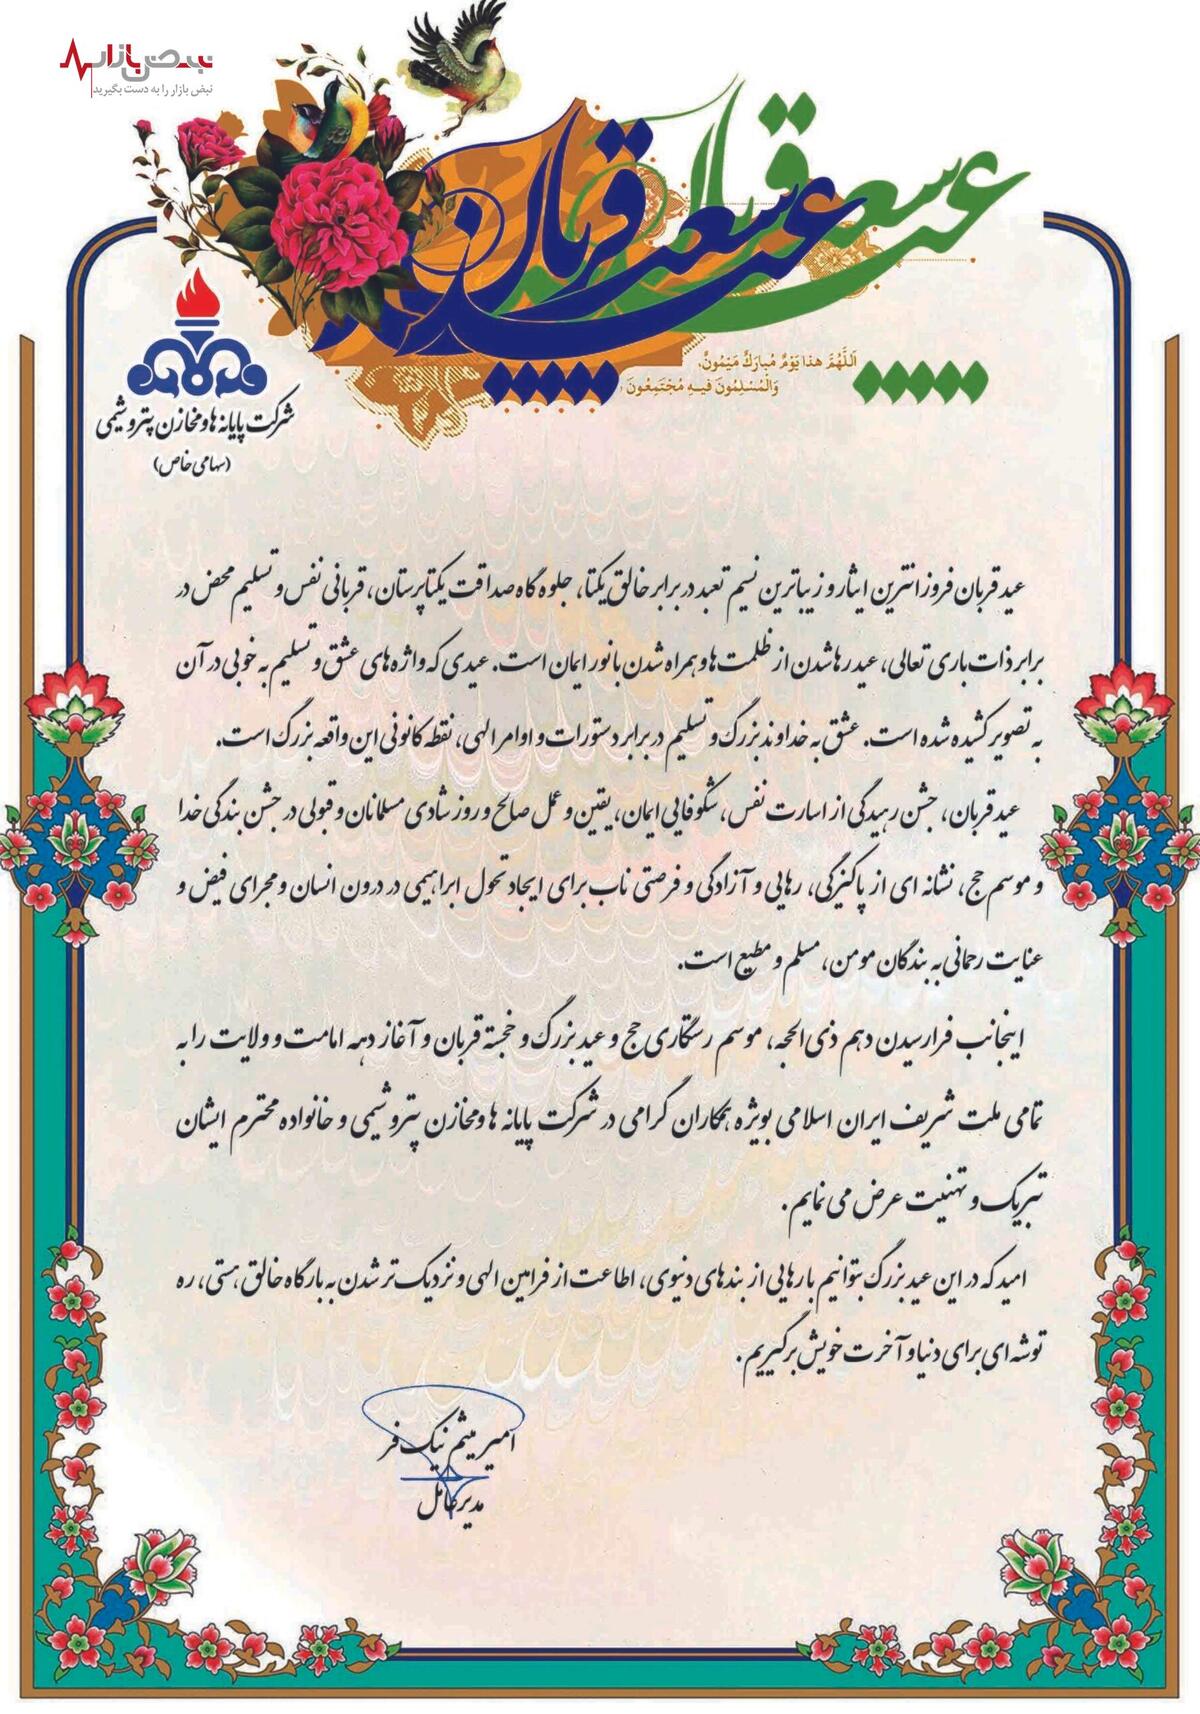 نبض بازار
نبض بازار را به دست بگیرید
عید سعید قربان
عید سعید قربان
اَللّهُمَّ هذا یَوْمٌ مُبارَکٌ مَیْمُونٌ،
وَالْمُسْلِمُونَ فیهِ مُجْتَمِعُونَ
شرکت پایانه ها و مخازن پتروشیمی
(سهامی خاص)
عید قربان فروزانترین ایثار و زیباترین نسیم تعبد در برابر خالق یکتا، جلوه گاه صداقت یکتاپرستان، قربانی نفس و تسلیم محض در
برابر ذات باری تعالی، عید رها شدن از ظلمت ها و همراه شدن با نور ایمان است. عیدی که واژه های عشق و تسلیم به خوبی در آن
به تصویر کشیده شده است. عشق به خداوند بزرگ و تسلیم در برابر دستورات و اوامر الهی، نقطه کانونی این واقعه بزرگ است.
عید قربان، جشن رهیدگی از اسارت نفس، شکوفایی ایمان، یقین و عمل صالح و روز شادی مسلمانان و قبولی در جشن بندگی خدا
و موسم حج، نشانه ای از پاکیزگی، رهایی و آزادگی و فرصتی ناب برای ایجاد تحول ابراهیمی در درون انسان و مجرای فیض و
عنایت رحمانی به بندگان مومن، مسلم و مطیع است.
اینجانب فرارسیدن دهم ذی الحجه، موسم رستگاری حج و عید بزرگ و خجسته قربان و آغاز دهه امامت و ولایت را به
تمامی ملت شریف ایران اسلامی بویژه همکاران گرامی در شرکت پایانه ها و مخازن پتروشیمی و خانواده محترم ایشان
تبریک و تهنیت عرض می نمایم.
امید که در این عید بزرگ بتوانیم با رهایی از بندهای دنیوی، اطاعت از فرامین الهی و نزدیک تر شدن به بارگاه خالق هستی، ره
توشه ای برای دنیا و آخرت خویش برگیریم.
امیر میثم نیک فر
مدیرعامل